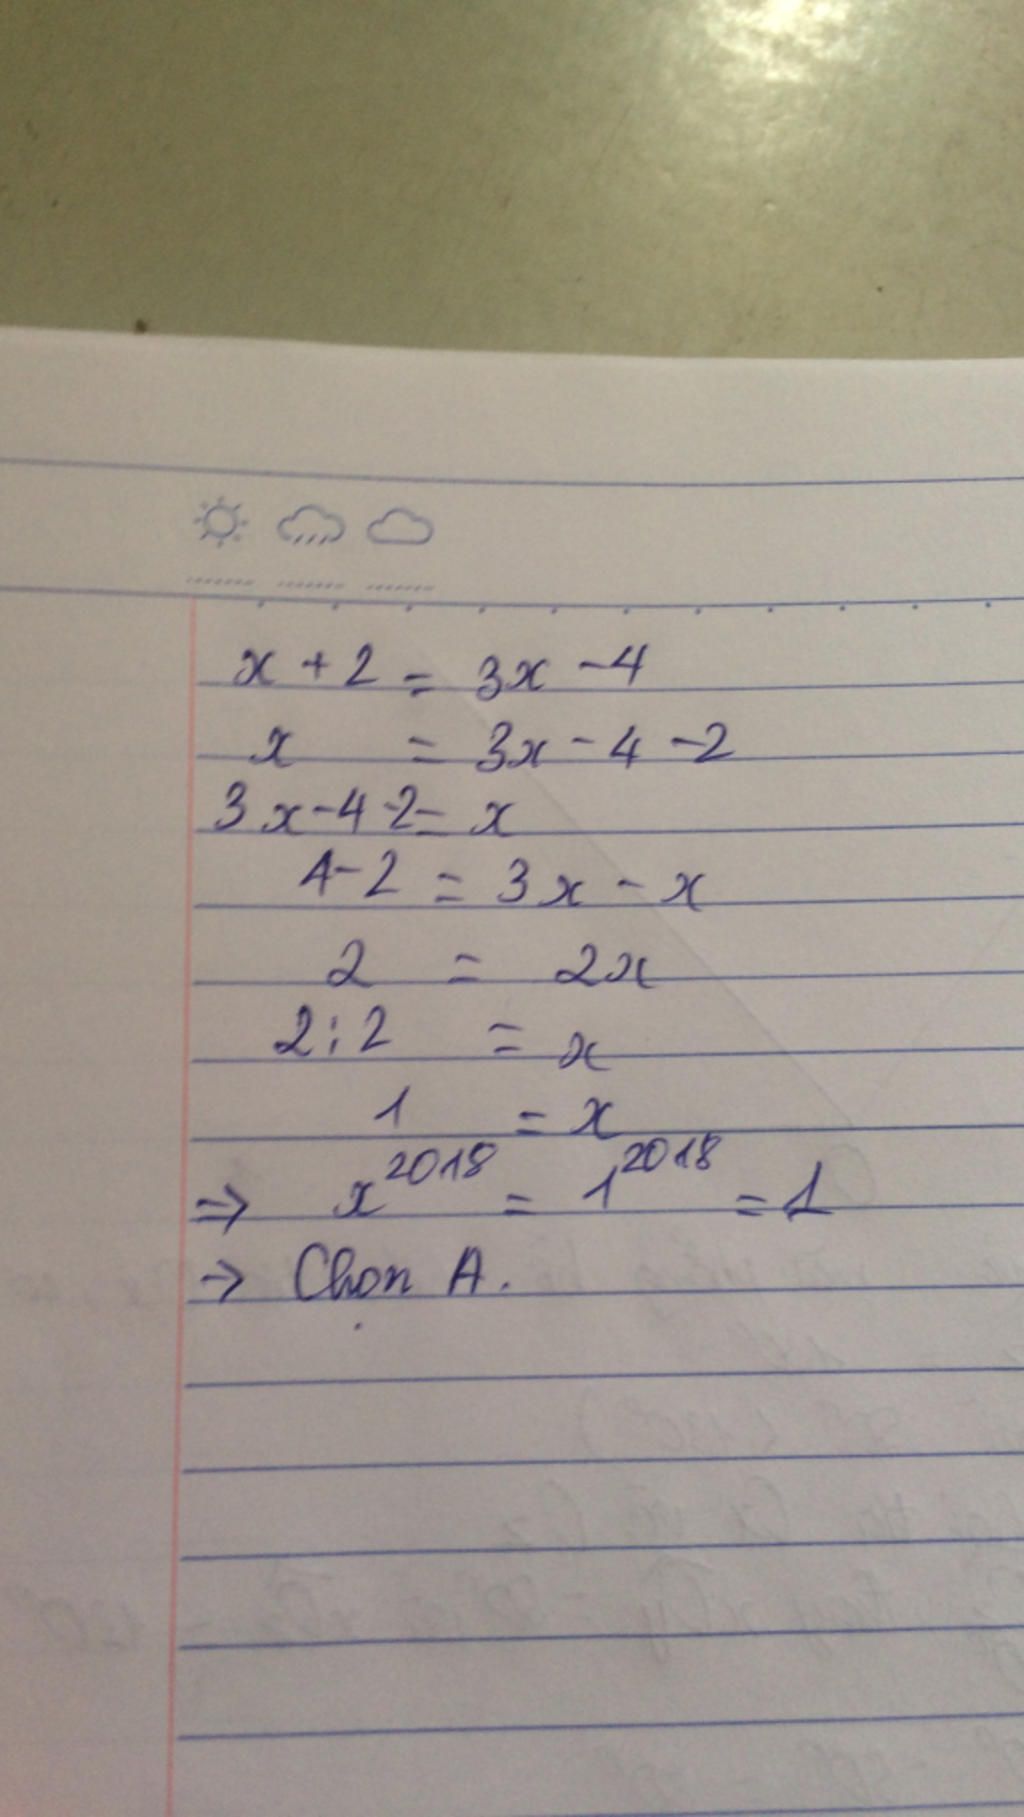 x + 2 = 3x - 4
x = 3x - 4 - 2
3x - 4 - 2 = x
4 - 2 = 3x - x
2 = 2x
2 : 2 = x
1 = x
⇒ x^2018 = 1^2018 = 1
→ Chọn A.